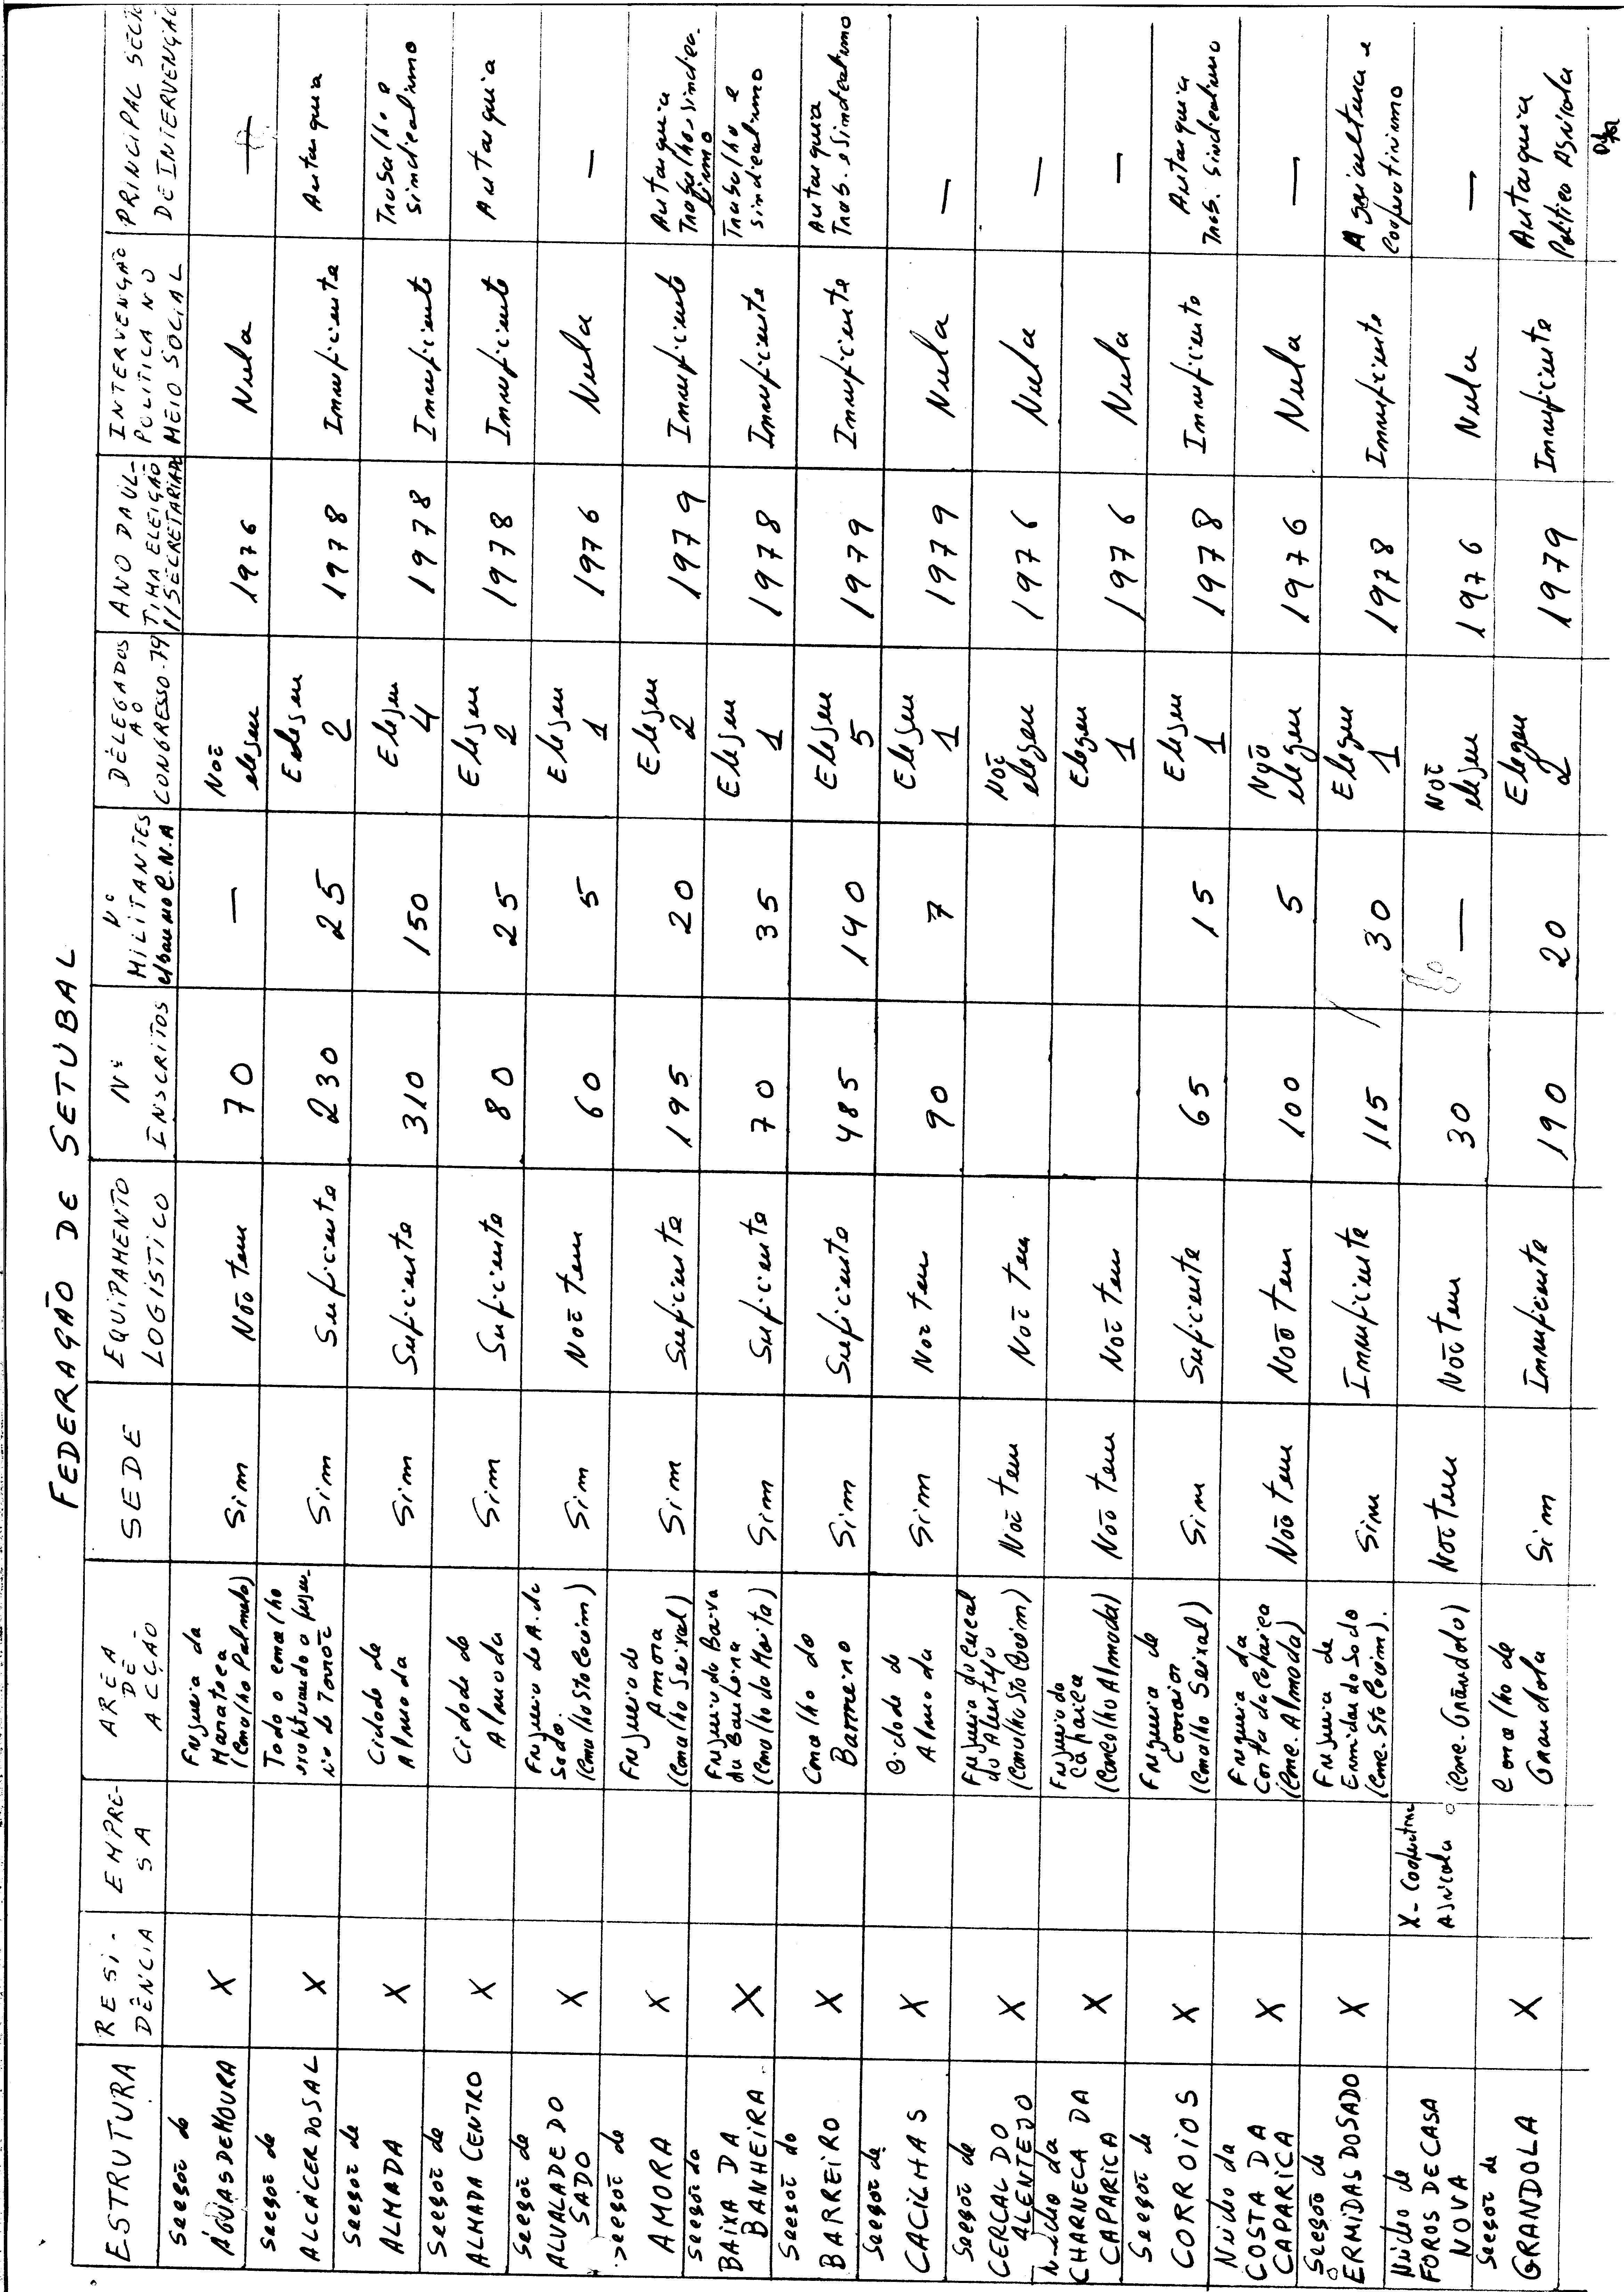 FEDERAÇÃO DE SETÚBAL
ESTRUTURA | RESIDÊNCIA | EMPRESA | ÁREA DE ACÇÃO | SEDE | EQUIPAMENTO LOGÍSTICO | Nº INSCRITOS | Nº MILITANTES C.N.A | DELEGADOS AO CONGRESSO-79 | ANO DA ÚLTIMA ELEIÇÃO //SECRETARIADO | INTERVENÇÃO POLITICA NO MEIO SOCIAL | PRINCIPAL SECTO DE INTERVENÇÃO
Secção de ÁGUAS DE MOURA | X | | Freguesia da Marateca (Concelho Palmela) | Sim | Não tem | 70 | — | Não elegeu | 1976 | Nula | —
Secção de ALCÁCER DO SAL | X | | Todo o concelho do Torrão | Sim | Suficiente | 230 | 25 | Elegeu 2 | 1978 | Insuficiente | Autarquia
Secção de ALMADA | X | | Cidade de Almada | Sim | Suficiente | 310 | 150 | Elegeu 4 | 1978 | Insuficiente | Trabalho e sindicalismo
Secção de ALMADA CENTRO | X | | Cidade de Almada | Sim | Suficiente | 80 | 25 | Elegeu 2 | 1978 | Insuficiente | Autarquia
Secção de ALVALADE DO SADO | X | | Freguesia de A. do Sado. (Concelho Sto Cacém) | Sim | Não tem | 60 | 5 | Elegeu 1 | 1976 | Nula | —
Secção de AMORA | X | | Freguesia de Amora (Concelho Seixal) | Sim | Suficiente | 195 | 20 | Elegeu 2 | 1979 | Insuficiente | Autarquia Trabalho-sindicalismo
Secção da BAIXA DA BANHEIRA | X | | Freguesia da Baixa da Banheira (Concelho da Moita) | Sim | Suficiente | 70 | 35 | Elegeu 1 | 1978 | Insuficiente | Trabalho e sindicalismo
Secção do BARREIRO | X | | Concelho do Barreiro | Sim | Suficiente | 485 | 140 | Elegeu 5 | 1979 | Insuficiente | Autarquia Trab. e Sindicalismo
Secção de CACILHAS | X | | Cidade de Almada | Sim | Não tem | 90 | 7 | Elegeu 1 | 1979 | Nula | —
Secção de CERCAL DO ALENTEJO | X | | Freguesia do Cercal do Alentejo (Concelho Sto Cacém) | Não tem | Não tem | | | Não elegeu | 1976 | Nula | —
Núcleo da CHARNECA DA CAPARICA | X | | Freguesia da Caparica (Concelho Almada) | Não tem | Não tem | | | Elegeu 1 | 1976 | Nula | —
Secção de CORROIOS | X | | Freguesia de Corroios (Concelho Seixal) | Sim | Suficiente | 65 | 15 | Elegeu 1 | 1978 | Insuficiente | Autarquia Trab. Sindicalismo
Núcleo da COSTA DA CAPARICA | X | | Freguesia da Costa da Caparica (Conc. Almada) | Não tem | Não tem | 100 | 5 | Não elegeu | 1976 | Nula | —
Secção de ERMIDAS DO SADO | X | | Freguesia de Ermidas do Sado (Conc. Sto Cacém). | Sim | Insuficiente | 115 | 30 | Elegeu 1 | 1978 | Insuficiente | Agricultura e Cooperativismo
Núcleo de FOROS DE CASA NOVA | | X- Cooperativa Agrícola | (Conc. Grândola) | Não tem | Não tem | 30 | — | Não elegeu | 1976 | Nula | —
Secção de GRANDOLA | X | | Concelho de Grandola | Sim | Insuficiente | 190 | 20 | Elegeu 2 | 1979 | Insuficiente | Autarquia Politica Agrícola